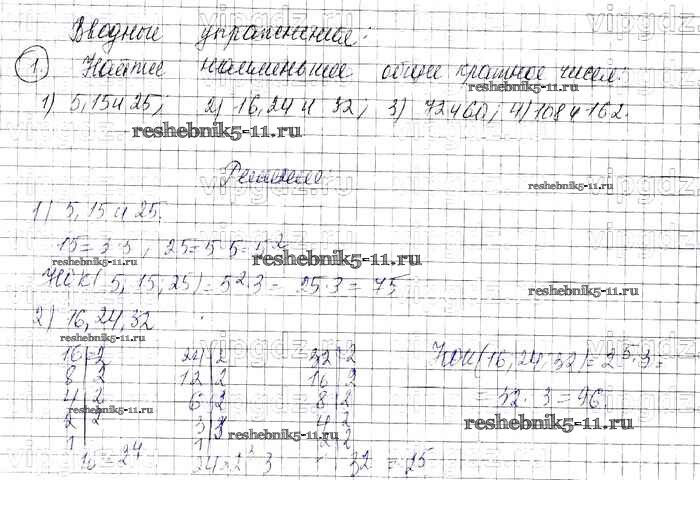 Вводные упражнения:
1. Найти наименьшее общее кратное чисел:
1) 5, 15 и 25; 2) 16, 24 и 32; 3) 72 и 60; 4) 108 и 162.
reshebnik5-11.ru
Решение:
vipgdz.ru
reshebnik5-11.ru
1) 5, 15 и 25.
15 = 3·5, 25 = 5·5 = 5²
reshebnik5-11.ru
reshebnik5-11.ru
НОК(5, 15, 25) = 5²·3 = 25·3 = 75
reshebnik5-11.ru
2) 16, 24, 32
reshebnik5-11.ru
16 2 24 2 32 2 НОК(16, 24, 32) = 2⁵·3 =
8 2 12 2 16 2
4 2 6 2 8 2 = 32·3 = 96
reshebnik5-11.ru
reshebnik5-11.ru
2 2 3 3 4 2
reshebnik5-11.ru
1 1 2 2
16 = 2⁴ 24 = 2³ 3 32 = 25